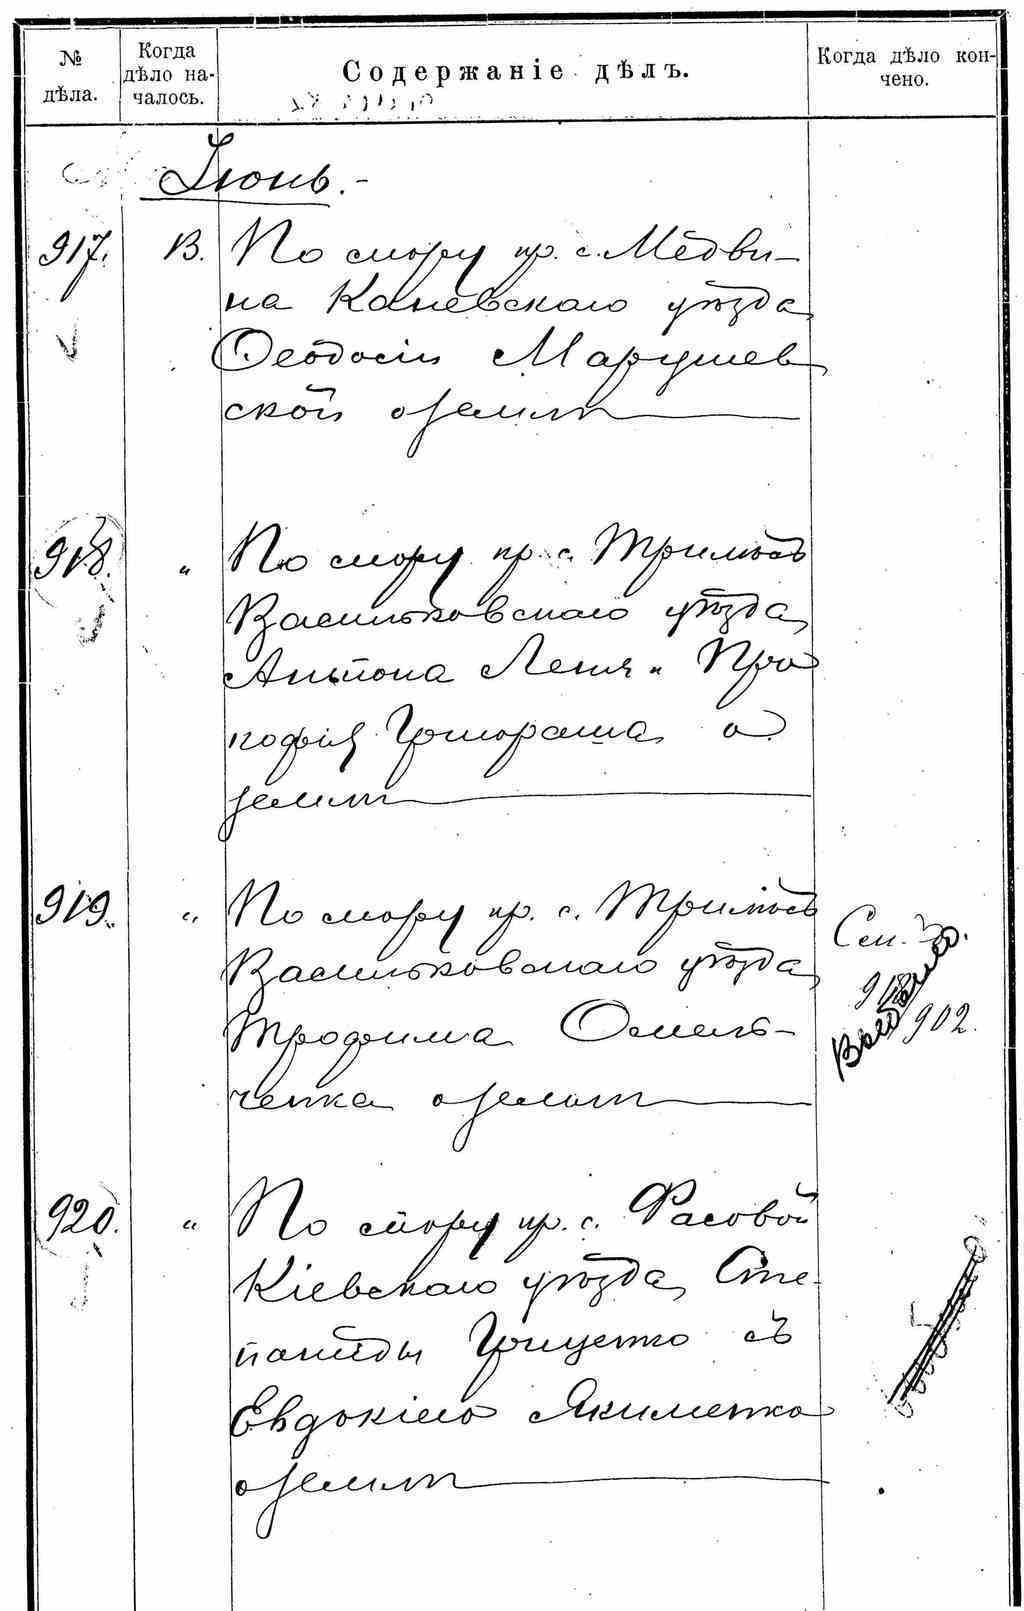 № дѣла.
Когда дѣло на-
чалось.
Содержаніе дѣлъ.
Когда дѣло кон-
чено.
Іюнь.-
917.
В.
По спору кр. с. Медви-
на Каневскаго уѣзда
Ѳеодосіи Марушев
ской о землѣ
918.
"
По спору кр. с. Трилѣсъ
Васильковскаго уѣзда
Антона Леня и Про
кофія Григораша о
землѣ
919.
"
По спору кр. с. Трилѣсъ
Васильковскаго уѣзда
Трофима Омель-
ченка о землѣ
Сен.
918
902.
920.
"
По спору кр. с. Фасовой
Кіевскаго уѣзда Сте-
паниды Грищенко съ
Евдокіею Якименко
о землѣ